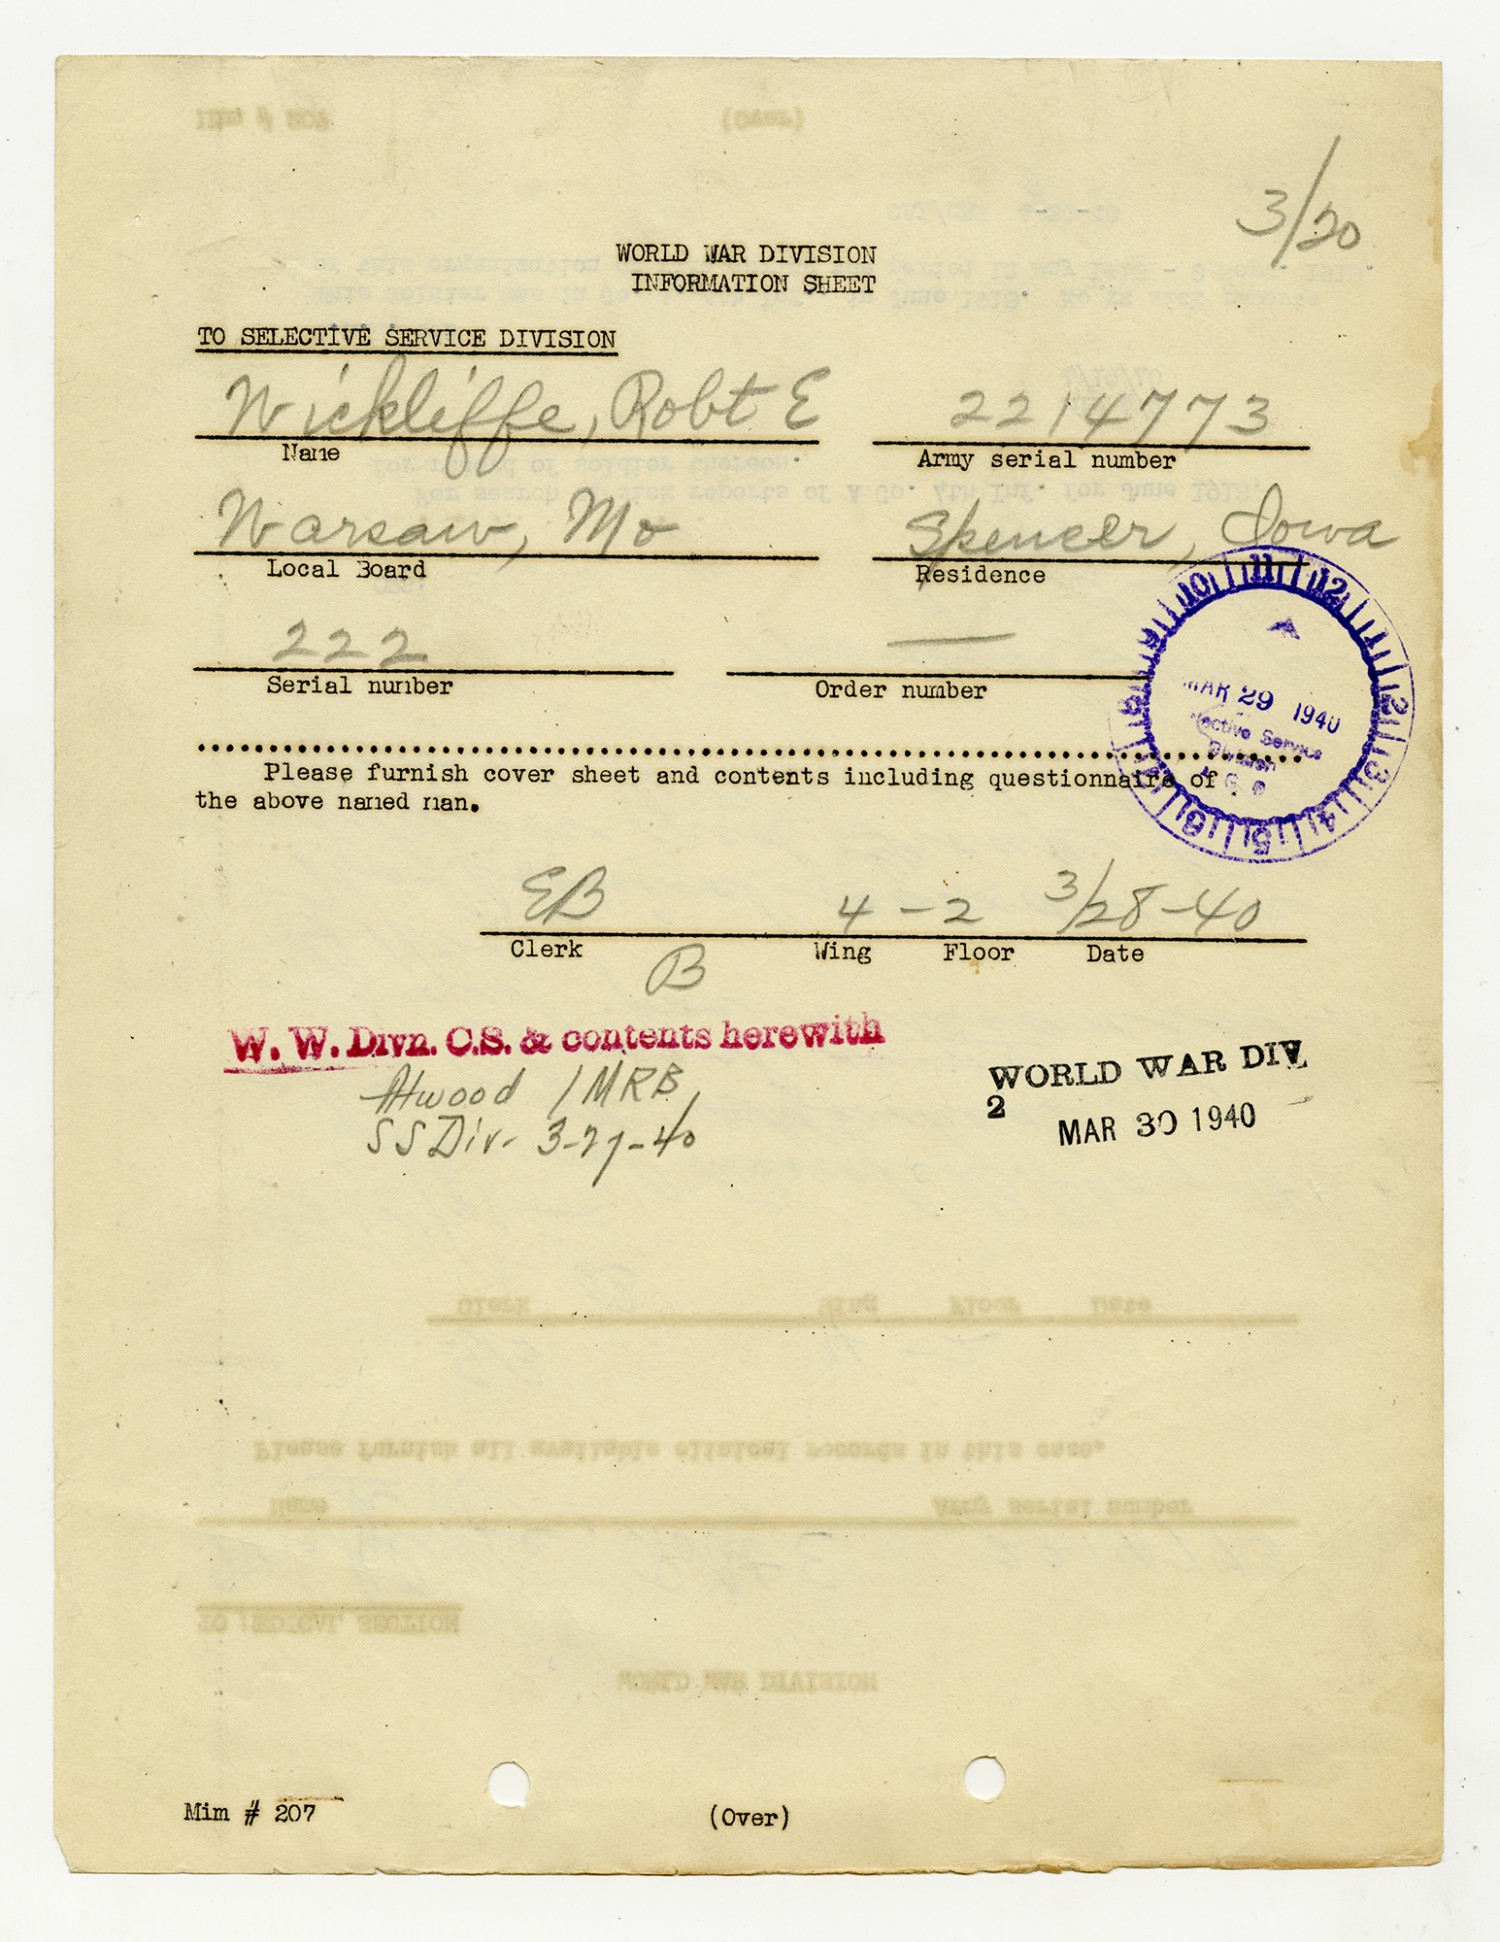 3/20
WORLD WAR DIVISION
INFORMATION SHEET
TO SELECTIVE SERVICE DIVISION
Wickliffe, Robt E 2214773
Name Army serial number
Warsaw, Mo Spencer, Iowa
Local Board Residence
222 —
Serial number Order number
9 10 11 12 1 2 3 4 5 6 8
MAR 29 1940
Service
Please furnish cover sheet and contents including questionnaire of
the above named man.
EB 4 - 2 3/28-40
Clerk Wing Floor Date
B
W. W. Divn. C.S. & contents herewith
Atwood / MRB
SS Div- 3-29-40
WORLD WAR DIV.
2
MAR 30 1940
Mim # 207 (Over)